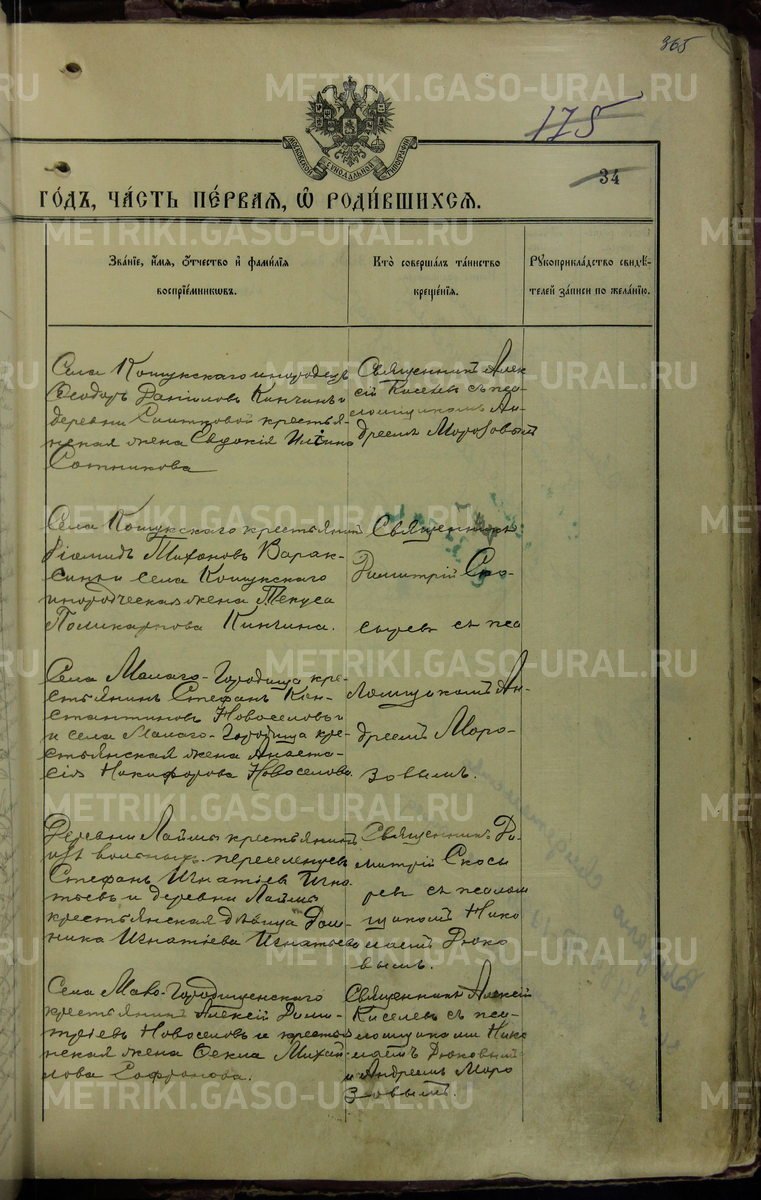 365
175
34
МОСКОВСКОЙ СѴНОДАЛЬНОЙ ТИПОГРАФІИ
ГОДЪ, ЧАСТЬ ПЕРВАЯ, Ѡ РОДИВШИХСЯ.
Званіе, имя, отчество и фамилія
воспріемниковъ.
Кто совершалъ таинство
крещенія.
Рукоприкладство свидѣ-
телей записи по желанію.
Села Кошукскаго инородецъ
Ѳеодоръ Даніиловъ Кинчинъ и
деревни крестья-
нская жена Евдокія
Сотникова
Священникъ Алек
сій Киселевъ съ пса
ломщикомъ Ан
дреемъ Морозовымъ
Села Кошукскаго крестьянинъ
Діомидъ Тихоновъ Варак-
синъ и села Кошукскаго
инородческая жена Текуса
Поликарпова Кинчина.
Священникъ
Димитрій Ско-
сыревъ съ пса
ломщикомъ Ан-
дреемъ Моро-
зовымъ.
Села Малаго-Городища кре-
стьянинъ Стефанъ Кон-
стантиновъ Новоселовъ и
и села Малаго-Городища кре-
стьянская жена Анаста-
сія Никифорова Новоселова.
Деревни Лаймы крестьянинъ
изъ переселенцевъ
Стефанъ Игнатіевъ Игна
тьевъ и деревни Лаймы
крестьянская дѣвица Дом-
ника Игнатіева Игнатьева
Священникъ Ди-
митрій Скосы
ревъ съ псалом
щикомъ Нико
лаемъ Дюко
вымъ.
Села Мало-Городищенскаго
крестьянинъ Алексій Дими-
тріевъ Новоселовъ и крестья
нская жена Ѳекла Михай
лова Софронова.
Священникъ Алексій
Киселевъ съ пса-
ломщиками Нико
лаемъ Дюковымъ
и Андреемъ Моро
зовымъ.
METRIKI.GASO-URAL.RU